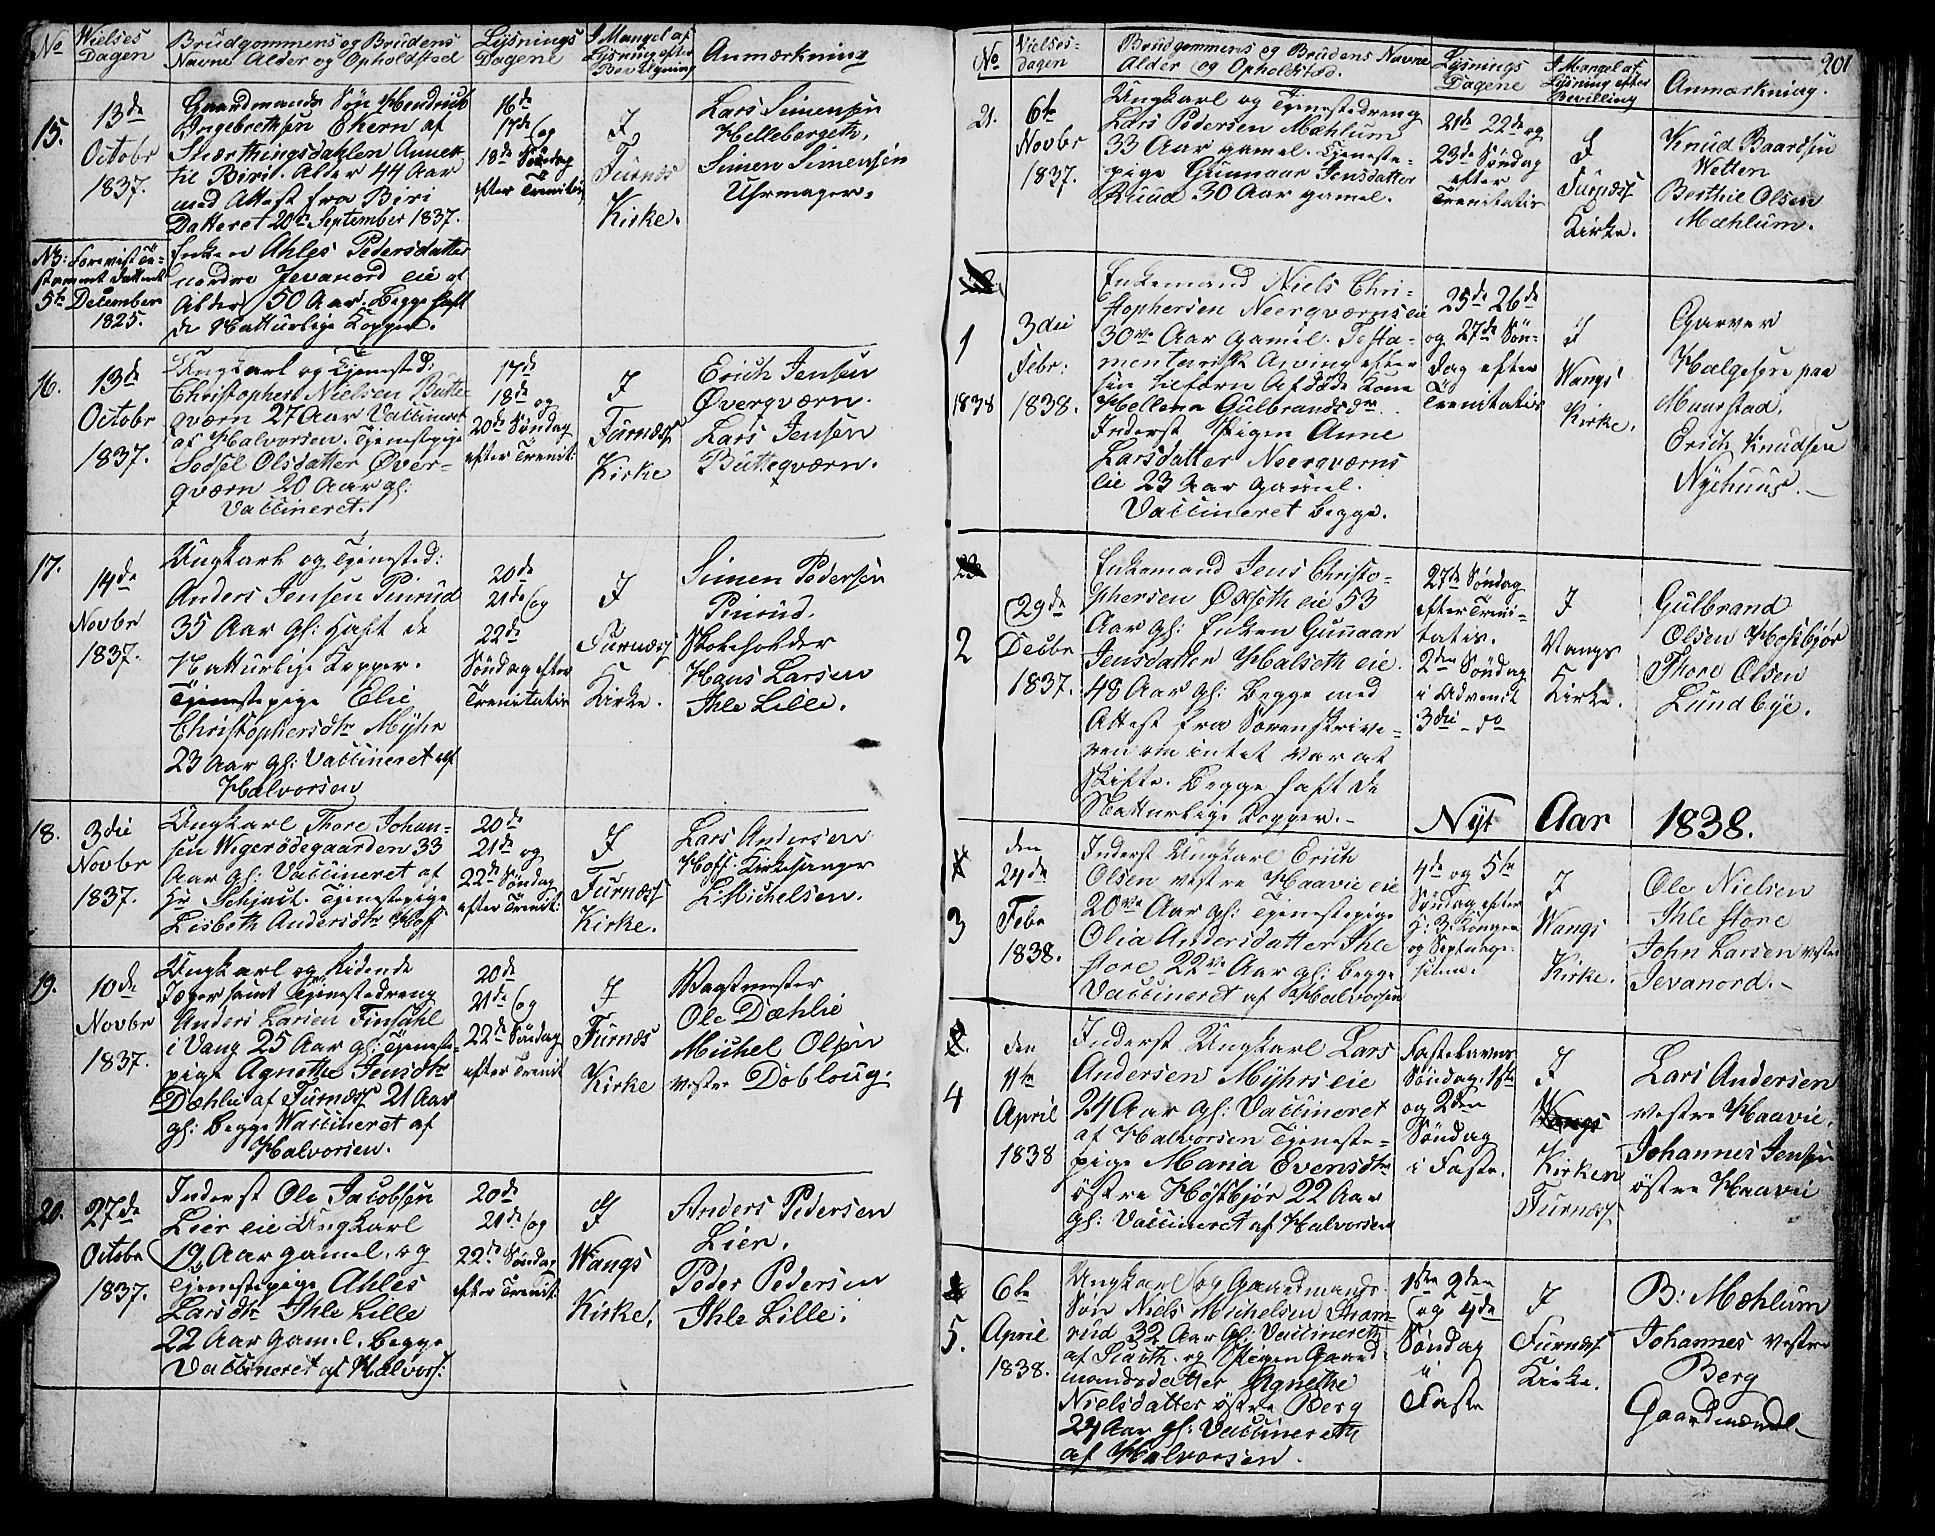 No
Vielses
Dagen
Brudgommens og Brudens
Navne Alder og Opholdsted
Lysnings
Dagene
I Mangel af
Lysning efter
Bevilgning
Anmærkning
15.
13de
Octobr
1837.
Gaardmands Søn Hendrick
Ingebrethsen Ekern af
til Biri. Alder 44 Aar
med Attest fra Biri
Datteret 20de September 1837.
NB: Forevist Te-
stament Dattert
5te December
1825.
Enken Ahles Pedersdatter
nordre Jevanord eie af
Alder 50 Aar. Begge haft
de Natturlige Kopper.
16de
17de og
18de Søndag
efter Trenitis
I
Furnæs
Kirke.
Lars Simensen
Helleberget.
Simen Simensen
Uhrmager.
16.
13de
Octobr
1837.
Ungkarl og Tjenested:
Christopher Nielsen Butte-
qværn 27 Aar Vaccineret
af Halvorsen. Tjenestepige
Sedsel Olsdatter Øver-
qværn 20 Aar gl:
Vaccineret.
17de
18de og
20de Søndag
efter Trenit:
I
Furnæs
Kirke
Erich Jensen
Øverqværn.
Lars Jensen
Butteqværn.
17.
14de
Novbr
1837.
Ungkarl og Tjenested:
Anders Jensen Pinrud
35 Aar gl: haft de
Natturlige Kopper.
Tjenestepige Elie
Christophersdtr Myhr
23 Aar gl: Vaccineret af
Halvorsen
20de
21de og
22de
Søndag efter
Trenitatis
I
Furnæs
Kirke.
Simen Pedersen
Pinrud.
Skoleholder
Hans Larsen
Ihle Lille.
18.
3die
Novbr
1837.
Ungkarl Thore Johan-
sen Wigerødegaarden 33
Aar gl: Vaccineret af
Hr Schiøtt. Tjenestepige
Lisbeth Andersdtr Hoff
20de
21de og
22de Søndag
efter Trenit:
I
Furnæs
Kirke.
Lars Andersen
Hoff Kirkesanger
L. Michelsen.
19.
10de
Novbr
1837.
Ungkarl og Ridende
Jæger samt Tjenestedreng
Anders Larsen Finsahl
i Vang 25 Aar gl: Tjeneste-
pige Agnethe Jensdtr
Dæhlie af Furnæs 21 Aar
gl: begge Vaccineret af
Halvorsen.
20de
21de og
22de Søndag
efter Trenit
I
Furnæs
Kirke
Vagtmester
Ole Dæhlie
Michel Olsen
vestre Dobloug.
20.
27de
Octobr
1837.
Inderst Ole Jacobsen
Lier eie Ungkarl
19 Aar gamel. og
Tjenestepige Ahles
Larsdtr Ihle Lille
22 Aar gamel, begge
Vaccineret af Halvors:
20de
21de og
22de Søndag
efter Trenit:
I
Wangs
Kirke.
Anders Pedersen
Lien.
Peder Pedersen
Ihle Lille.
201
No
Vielses-
dagen
Brudgommens og Brudens Navne
Alder og Opholdsted.
Lysnings
Dagene
I Mangel af
Lysning efter
Bevilling
Anmærkning.
21.
6te
Novbr
1837.
Ungkarl og Tjenestedreng
Lars Pedersen Mæhlum
33 Aar gamel. Tjeneste-
pige Gunnaar Jensdatter
Ruud 30 Aar gamel.
21de 22de og
23de Søndag
efter
Trenitatis
I
Furnæs
Kirke.
Knud Baardsen
Wetten
Berthil Olsen
Mæhlum.
1
1838
3die
Febr:
1838.
Enkemand Niels Chri-
stophersen Neerqværnseie
30ve Aar gamel. Testa-
mentarisk Arving efter
sin tilforn Afdøde Kone
Hellena Gulbrandsdr.
Inderst Pigen Anne
Larsdatter Neerqværns
eie 23 Aar gamel.
Vaccineret begge.
25de 26de
og 27de Søn-
dag efter
Trenitatis
I
Wangs
Kirke.
Garver
Helgesen paa
Maurstad.
Erich Knudsen
Nyehuus.
2
29de
Decbr
1837.
Enkemand Jens Christo-
phersen Oxseth eie 53
Aar gl: Enken Gunnaar
Jensdatter Halseth eie
48 Aar gl: begge med
Attest fra Sorenskrive-
ren om intet var at
skifte. begge haft de
Natturlige Kopper.
27de Søndag
efter Treni-
tatis.
2den Søndag
i Advendt
3die do
I
Vangs
Kirke.
Gulbrand
Olsen Høsbjør
Thore Olsen
Lundbye.
Nyt Aar 1838.
3
den
24de
Febr
1838.
Inderst Ungkarl Erich
Olsen vestre Haavie eie
20ve Aar gl: Tjenestepige
Olia Andersdatter Ihle
store 22ve Aar gl: begge
Vaccineret af Halvorsen
4de og 5te
Søndag efter
H: 3: Konger
og Septuage-
sima.
I
Wangs
Kirke.
Ole Nielsen
Ihle store
John Larsen vestre
Jevanord.
4
den
11te
April
1838
Inderst Ungkarl Lars
Andersen Myhrs eie
24 Aar gl: Vaccineret
af Halvorsen Tjeneste-
pige Maria Evensdtr
østre Høsbjør 22 Aar
gl: Vaccineret af Halvorsen
Fastelavns
Søndag, 1ste
og 2den
Søndag
i Faste.
I
Wangs
Kirken
Furnæs
Lars Andersen
vestre Haavie.
Johannes Jensen
østre Haavie
5.
6te
April
1838.
Ungkarl og Gaardmands
Søn Niels Michelsen Stram-
rud 32 Aar gl: Vaccineret
af og Pigen Gaard
mandsdatter Agnethe
Nielsdatter østre Berg
24 Aar gl: Vaccinereth
af Halvorsen.
1ste 2den
og 4de
Søndag
i
Faste
I
Furnæs
Kirke.
B: Mæhlum
Johannes vestre
Berg
Gaardmænd